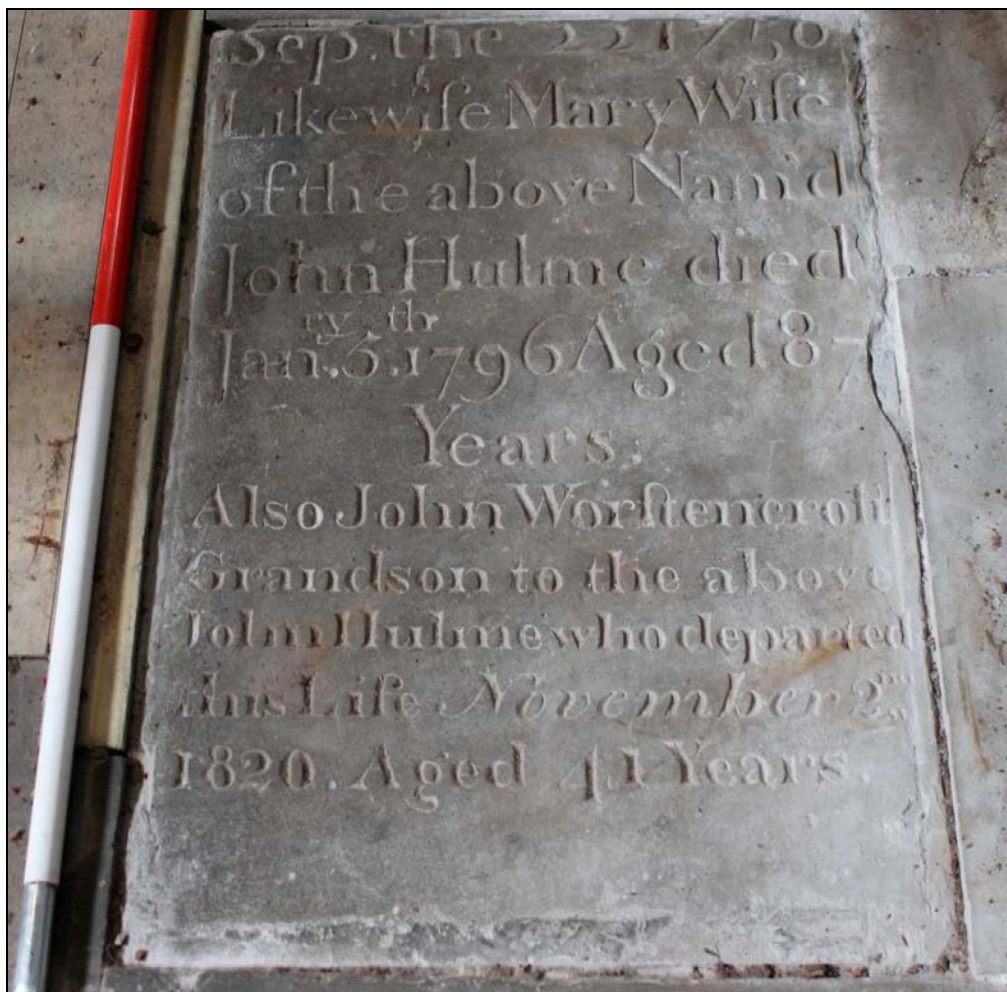 Sep. the 22 1750
Likewiſe Mary Wife
of the above Nam'd
John Hulme died
Jan.ry 5.th 1796 Aged 87
Years.
Also John Worſtencroft
Grandson to the above
John Hulme who departed
this Life November 2nd
1820. Aged 41 Years.